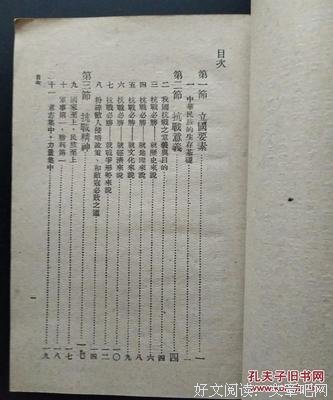 目次
第一節 立國要素………一
一 中華民族的生存基礎………一
第二節 抗戰意義………四
二 我國抗戰之意義與目的………四
三 抗戰必勝——就歷史來說………四
四 抗戰必勝——就地理來說………六
五 抗戰必勝——就文化來說………八
六 抗戰必勝——就經濟來說………一〇
七 抗戰必勝——就戰爭形勢來說………一二
八 粉碎敵人侵略政策，和敵寇必敗之道………一四
第三節 抗戰精神………一七
九 國家至上，民族至上………一七
十 軍事第一，勝利第一………一八
十一 意志集中，力量集中………一九
目次
一
孔夫子旧书网
好文阅读：文章吧网